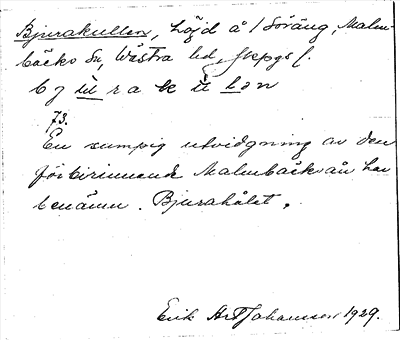 Bjurakullen, höjd å 1 Soräng, Malm-
bäcks sn, Västra hd,
73.
En sumpig utvidgning av den
förbirinnande Malmbäcksån har
benämn. Bjurahålet.
Erik Art Johansson 1929.